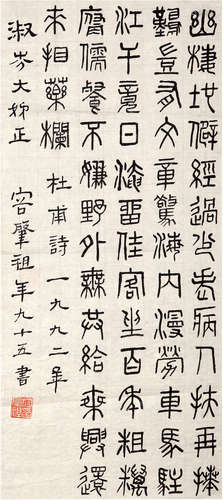 幽棲地僻經過少老病人扶再拜
難豈有文章驚海內漫勞車馬駐
江干竟日淹留佳客坐百年粗糲
腐儒餐不嫌野外無共給乘興還
來看藥欄 杜甫詩 一九九二年
淑芬大姊正 容肇祖年九十五書